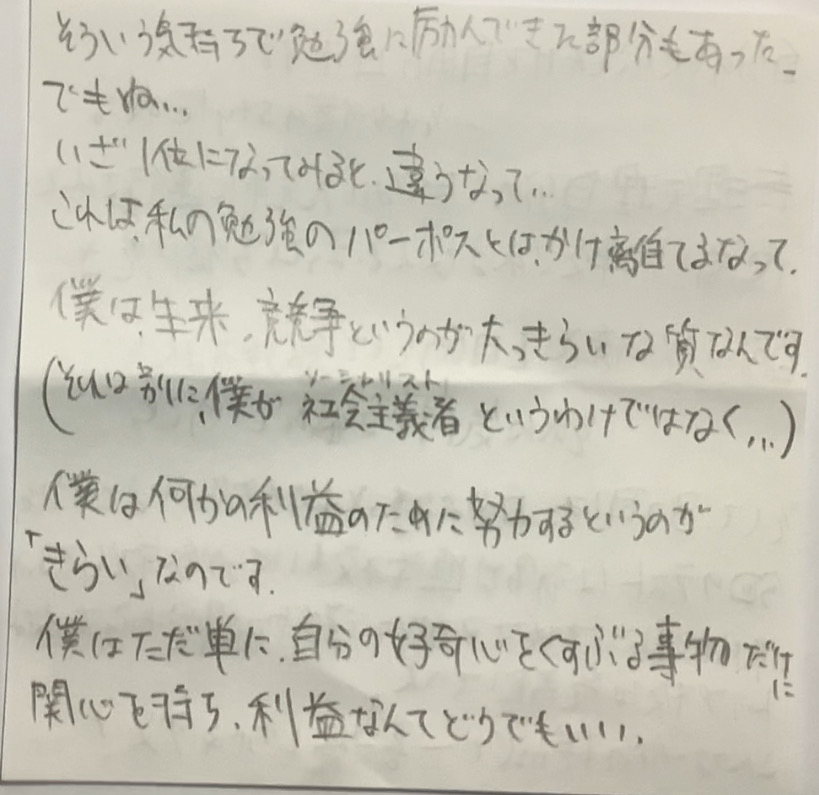 そういう気持ちで勉強に励んできた部分もあった。
でもね...
いざ1位になってみると、違うなって...
これは、私の勉強のパーポスとは、かけ離れてるなって、
僕は、生来、競争というのが大っきらいな質なんです。
(それは別に、僕が社会主義者というわけではなく、...)
ソーシャリスト
僕は何かの利益のために努力するというのが
「きらい」なのです。
僕はただ単に、自分の好奇心をくすぶる事物だけに
関心を持ち、利益なんてどうでもいい、